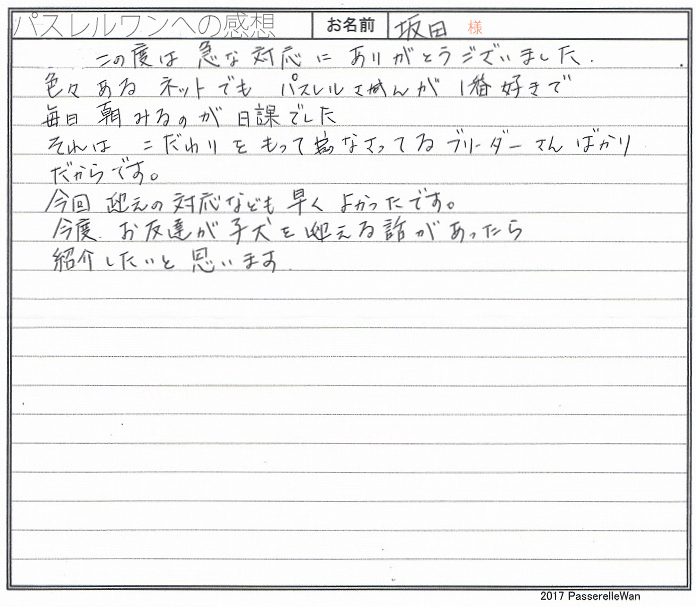 パスレルワンへの感想 お名前 坂田 様
この度は 急な対応に ありがとうございました.
色々ある ネットでも パスレルさんが 1番好きで
毎日 朝みるのが 日課でした
それは こだわりをもって なさってる ブリーダーさんばかり
だからです。
今回 迎えの対応なども 早く よかったです。
今度 お友達が子犬を迎える話があったら
紹介したいと思います
2017 PasserelleWan